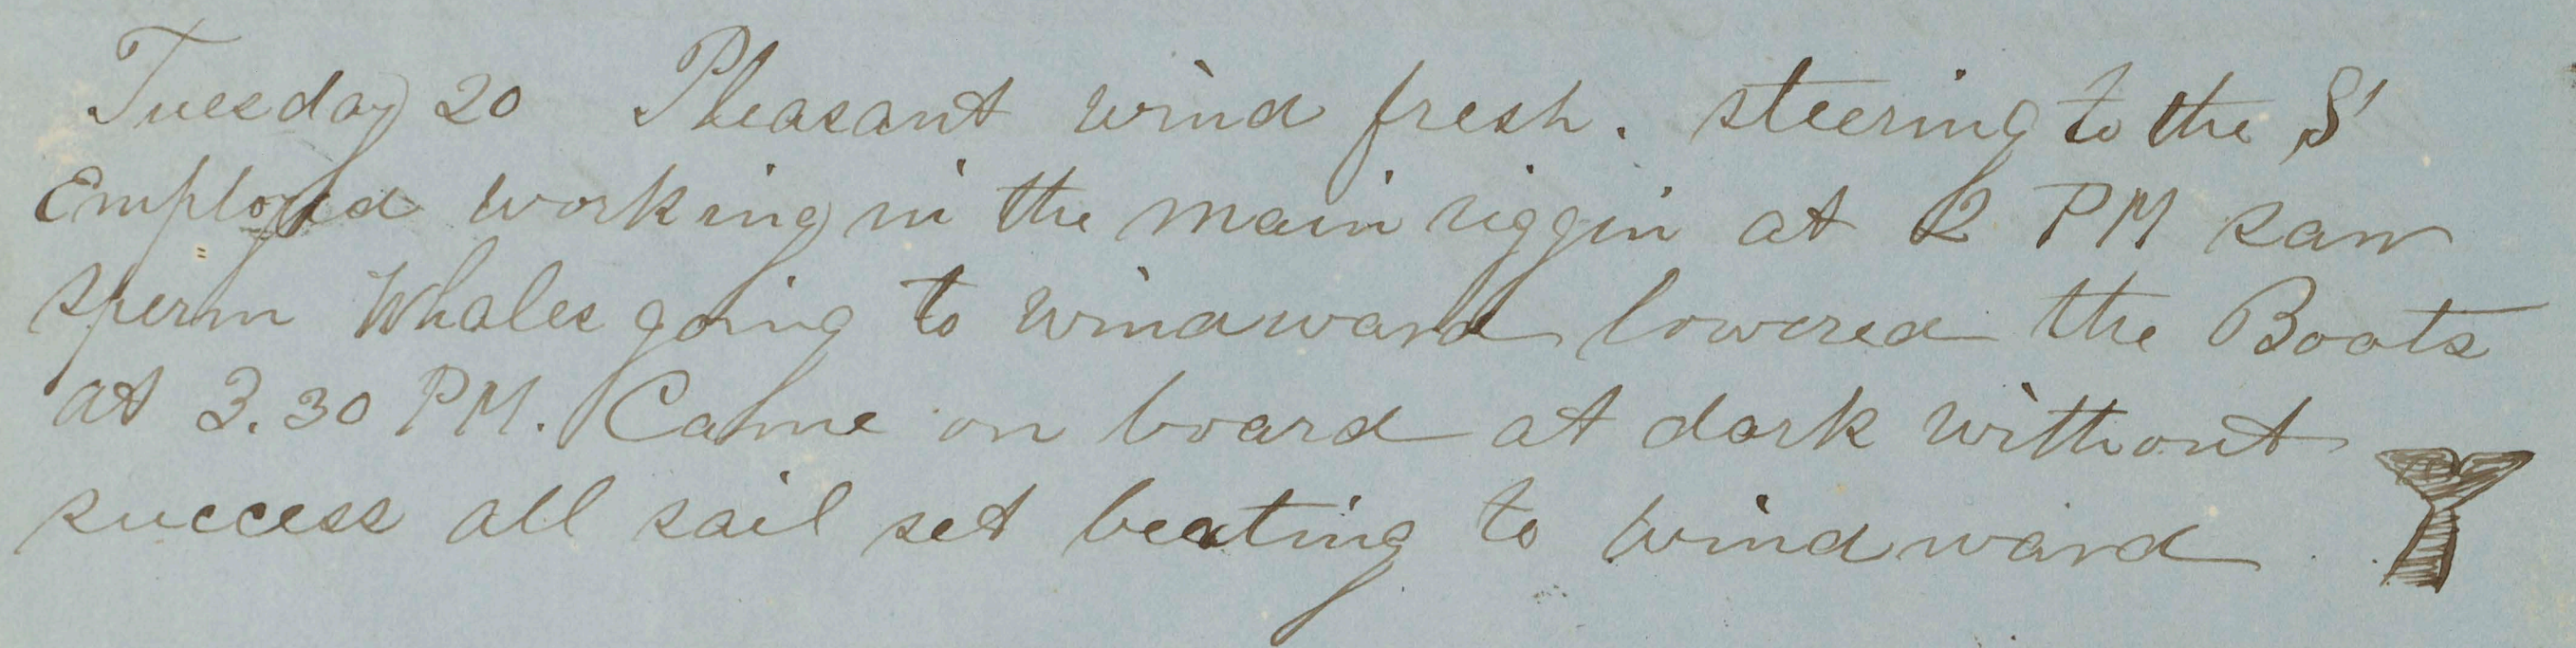 Tuesday 20 Pleasant wind fresh. steering to the S'
Employed working in the main riggin at 2 PM saw
sperm Whales going to windward lowered the Boats
at 3.30 PM. Came on board at dark without
success all sail set beating to windward